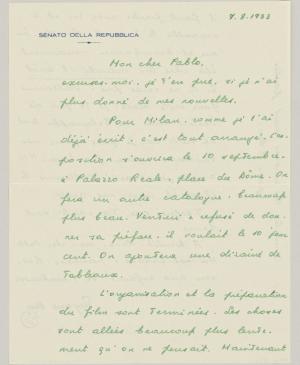 7.8.1953
SENATO DELLA REPUBBLICA
Mon cher Pablo,
excuses-moi, je t'en prie, si je n'ai
plus donné de mes nouvelles.
Pour Milan, comme je t'ai
déjà écrit, c'est tout arrangé. L'ex-
position s'ouvrira le 10 septembre,
à Palazzo Reale, place du Dôme. On
fera un autre catalogue, beaucoup
plus beau. Venturi a refusé de don-
ner sa préface, il voulait le 10 per
cent. On ajoutera une dizaine de
Tableaux.
L'organisation et la préparation
du film sont terminées. Les choses
sont allées beaucoup plus lente-
ment qu'on ne pensait. Maintenant